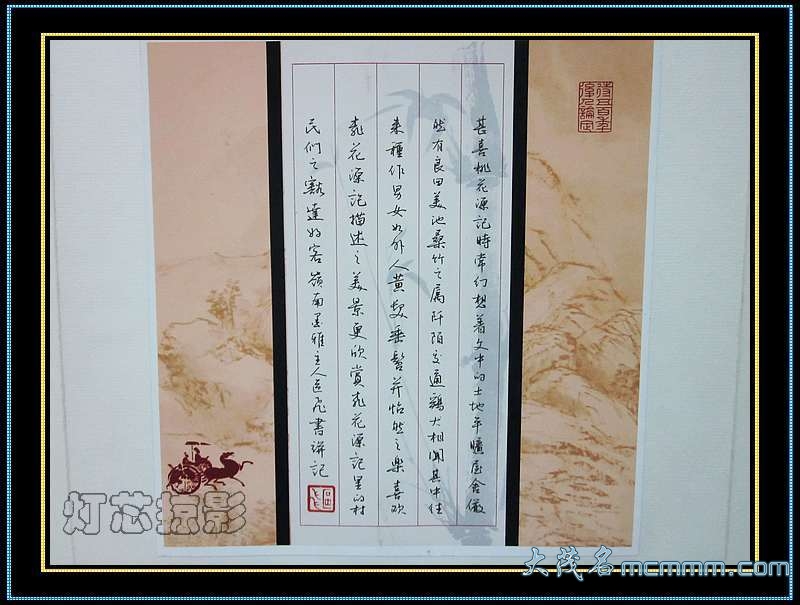 甚喜桃花源记時常幻想着文中的土地平曠屋舍儼
然有良田美池桑竹之属阡陌交通鷄犬相聞其中往
来種作男女如外人黄髮垂髫并怡然之樂喜欣
桃花源記描述之美景更欣賞桃花源記里的村
民们之豁達好客嶺南墨雅主人区飛書講記
灯芯掠影
大茂名mcmmm.com